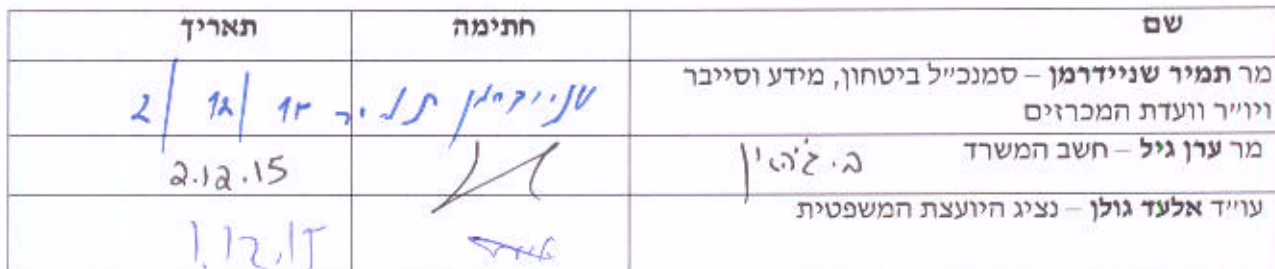 שם חתימה תאריך
מר תמיר שניידרמן – סמנכ״ל ביטחון, מידע וסייבר
ויו״ר וועדת המכרזים
שניידרמן תמיר 2/12/15
מר ערן גיל – חשב המשרד 2.12.15
עו״ד אלעד גולן – נציג היועצת המשפטית
1.12.15